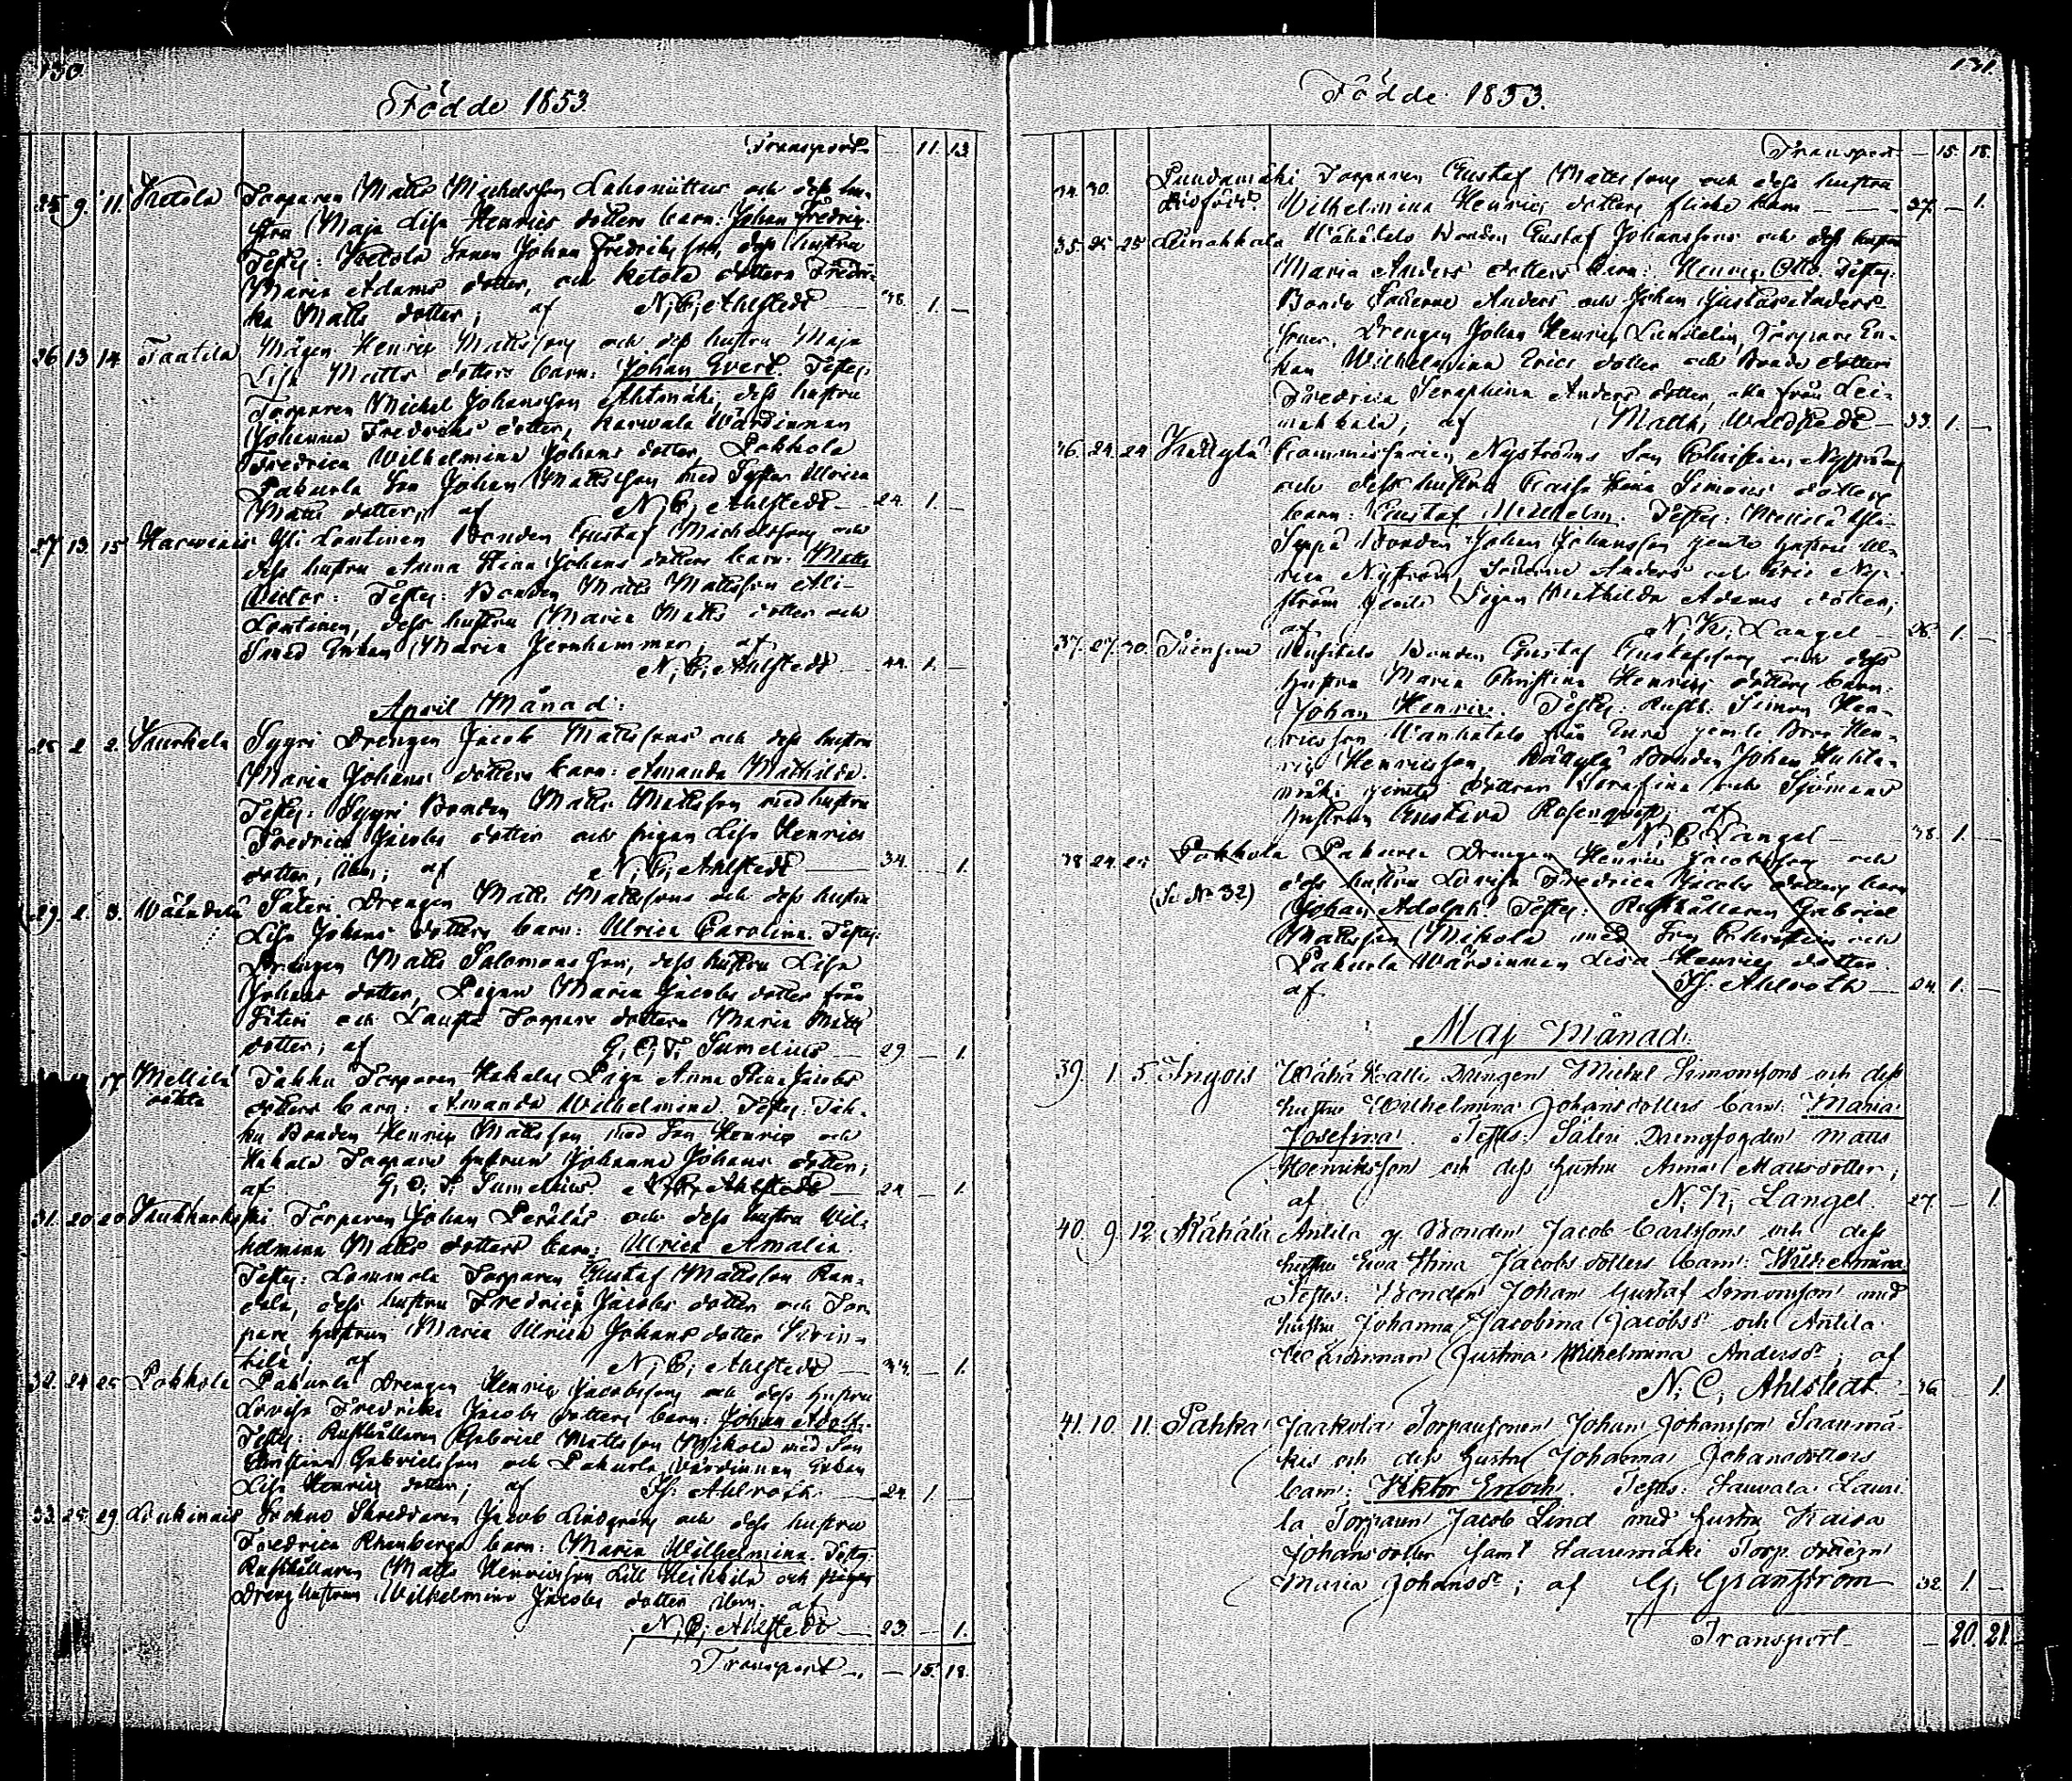 130.
Födde 1853.
Transport — 11. 13
25. 9. 11. Ketola Torparen Matts Michelsson Lahoniittus och dess hu-
stru Maja Lisa Henrics dotters barn: Johan Fredric.
Testes: Ketola Sonen Johan Fredriksson, dess hustru
Maria Adams dotter, och Ketola dottern Fredri-
ka Matts dotter; af N. C. Ahlstedt — 38. 1. —
26 13 14 Tantila Mågen Henric Mattsson och dess hustru Maja
Lisa Matts dotters barn: Johan Evert. Testes:
Torparen Michel Johansson Ahtmäki, dess hustru
Johanna Fredrics dotter, Karwala Wärdinnan
Fredrica Wilhelmina Johans dotter, Pokkola
Pakurla Son Johan Mattsson med Syster Ulrica
Matts dotter; af N. C. Ahlstedt — 24. 1. —
27 13. 15 Karwenis Yli Lontinen Bonden Gustaf Michelsson och
dess hustru Anna Stina Johans dotters barn: Matts
Victor: Testes: Bonden Matts Mattsson Ali
Lontinen, dess hustru Maria Matts dotter och
Smed Enkan Maria Jernhammar; af
N. C. Ahlstedt — 44. 1. —
April Månad:
28 2 2. Sygri Drengen Jacob Mattssons och dess hustru
Maria Johans dotters barn: Amanda Mathilda.
Testes: Sygri Bonden Matts Mattsson med hustru
Fredrica Jacobs dotter och pigan Lisa Henrics
dotter, ibm; af N. C. Ahlstedt — 34. — 1.
29. 2. 3. Säteri Drengen Matts Mattssons och dess hustru
Lisa Johans dotters barn: Ulrica Carolina. Testes:
Drengen Matts Salomonsson, dess hustru Lisa
Johans dotter, Pigan Maria Jacobs dotter från
Säteri och Torpare dottern Maria Matts
dotter; af G. O. T. Sumelius — 29 — 1.
17 Mellilä oäkta Torparen Hakalas Piga Anna Stina Jacobs
dotters barn: Amanda Wilhelmina Testes:
Bonden Henric Mattsson med Son Henric och
Hakala Torpare hustrun Johanna Johans dotter;
af G. O. T. Sumelius. — 24 — 1.
31. 20 20 Torparen Johan Peräläs och dess hustru Wil-
helmina Matts dotters barn: Ulrica Amalia.
Testes: Torparen Gustaf Mattsson
dess hustru Fredrica Jacobs dotter och Tor-
pare hustrun Maria Ulrica Johans dotter
af N. C. Ahlstedt — — 1.
32. 24 25 Pokkola Pakurla Drengen Henric Jacobsson och dess hustru
Lovisa Fredrika Jacobs dotters barn: Johan Adolf.
Testes: Rusthållaren Gabriel Mattsson Mikola med Son
Christian Gabrielsson och Pakurla Wärdinnan Enkan
Lisa Henrics dotter; af Ahlroth. — 24. 1. —
33. 25. 29 Skreddaren Jacob Lindqvist och dess hustru
Fredrica Rhenbergs barn: Maria Wilhelmina. Testes:
Rusthållaren Matts Henricsson Lill Heikkilä och
Dreng hustrun Wilhelmina Jacobs dotter ibm. af
N. C. Ahlstedt — 23. — 1.
Transport — 15. 18.
131.
Födde 1853.
Transport — 15. 18.
34. 30. Pundamäki Torparen Gustaf Mattsson och dess hustru
Dödfödt. Wilhelmina Henrics dotters flicke barn — 37. — 1.
35. 25 25 Leinakkala Bonden Gustaf Johanssons och dess hustru
Maria Anders dotters barn: Henric Otto. Testes:
Bonde Sönerne Anders och Johan Gustaf Anders-
söner, Drengen Johan Henric Lundelin, Torpare En-
kan Wilhelmina Erics dotter och Bonde dottern
Fredrica Seraphina Anders dotter, alla från Lei-
nakkala; af Matth. Waldstedt — 33. 1. —
36. 24. 24 Commissarien Nyströms Son Christian Nyström
och dess hustru Caisa Stina Simons dotters
barn: Gustaf Wilhelm. Testes: Mellilä Yli-
Seppä Bonden Johan Johansson jemte hustru Ul-
rica Nyström, Sönerne Anders och Eric Ny-
ström jemte Pigan Mathilda Adams dotter,
af N. K. Langel — 28. 1. —
37. 27. 30. Bonden Gustaf Gustafsson och dess
hustru Maria Christina Henrics dotters barn:
Johan Henric. Testes: Rusth. Simon Hen-
ricsson från Eura jemte Bror Hen-
ric Henricsson, Bonden Johan Huhta-
mäki jemte dottren Serafina och Sjömans
hustrun Gustava Rosenqvist; af
Langel — 38. 1. —
38 24. 25 Pokkola Pakurla Drengen Henric Jacobsson och
(Se No 32) dess hustru Lovisa Fredrica Jacobs dotters barn
Johan Adolph. Testes: Rusthållaren Gabriel
Mattsson Mikola med Son Christian och
Pakurla Wärdinnan Lisa Henrics dotter.
af Ahlroth — 24. 1. —
Maj Månad.
39. 1. 5. Ingois Wähä Kalli Drengen Michel Simonssons och dess
hustru Wilhelmina Johansdotters barn: Maria
Josefina. Testes: Säteri Drengfogden Matts
Henriksson och dess hustru Anna Mattsdotter;
af N. K. Langel. 27. — 1.
40. 9. 12. Kähälä Antila Bonden Jacob Carlssons och dess
hustru Eva Stina Jacobs dotters barn:
Testes: Bonden Johan Gustaf Simonsson med
hustru Johanna Jacobina Jacobsdr och Antila
Wärdinnan Justina Wilhelmina Andersdr; af
N. C. Ahlstedt. 36 — 1.
41. 10. 11. Pahka Jaakola Torparsonen Johan Johansson Saarimä-
kis och dess hustru Johanna Johansdotters
barn: Viktor Enoch. Testes: Sauvala Lauri-
la Torparen Jacob Lind med hustru Kaisa
Johansdotter samt Saarimäki Torp. dottern
Maria Johansdr; af G. Granström 32. 1. —
Transport — 20. 21.